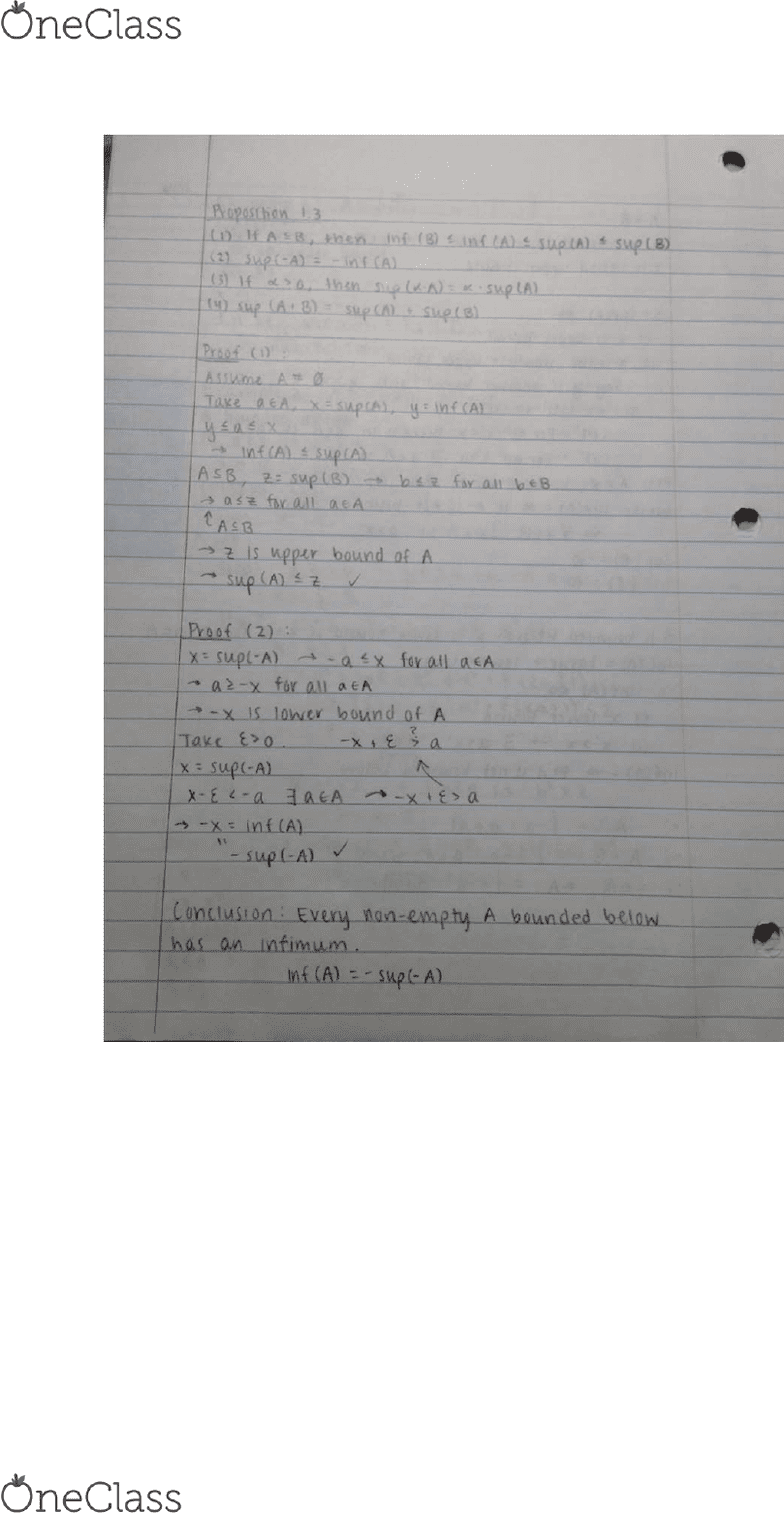 OneClass
Proposition 1.3
(1) If A ⊆ B, then inf (B) ≤ inf (A) ≤ sup (A) ≤ sup (B)
(2) sup(-A) = - inf (A)
(3) If α > 0, then sup (α A) = α · sup (A)
(4) sup (A + B) = sup (A) + sup (B)
Proof (1) :
Assume A = ∅
Take a ∈ A, x = sup (A), y = inf (A)
y ≤ a ≤ x
→ inf (A) ≤ sup (A)
A ⊆ B, z = sup (B) → b ≤ z for all b ∈ B
→ a ≤ z for all a ∈ A
↑ A ⊆ B
→ z is upper bound of A
→ sup (A) ≤ z ✓
Proof (2) :
x = sup(-A) → - a ≤ x for all a ∈ A
→ a ≥ - x for all a ∈ A
→ - x is lower bound of A
Take ε > 0. - x + ε >? a
x = sup (-A)
x - ε < - a ∃ a ∈ A → - x + ε > a
→ - x = inf (A)
" - sup (-A) ✓
Conclusion : Every non-empty A bounded below
has an infimum.
inf (A) = - sup (- A)
OneClass